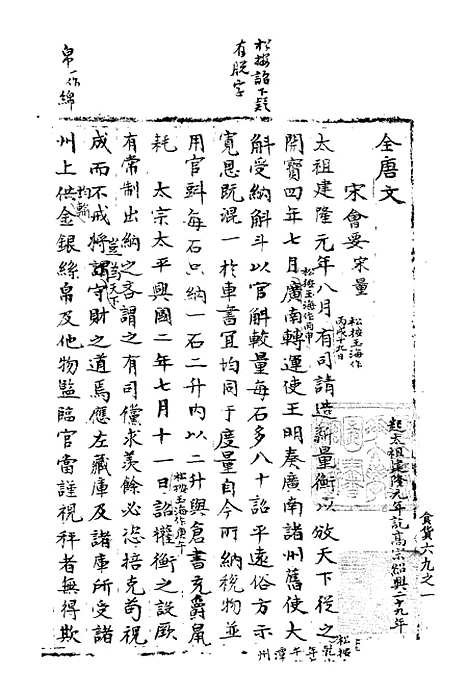 松按詔下疑
有脱字
帛一作綿
全唐文
宋會要宋量
起太祖建隆元年訖高宗紹興二十九年
食貨六九之一
太祖建隆元年八月有司請造新量衡以頒天下從之
松按玉海作
丙戌十九日
開寶四年七月廣南轉運使王明奏廣南諸州舊使大
松按玉海作丙申
斛受納斛斗以官斛較量每石多八十詔平遠俗方示
寬恩既混一於車書宜均同于度量自今所納稅物並
用官㪷每石只納一石二升内以二升與倉書充爵鼠
耗　太宗太平興國二年七月十一日詔權衡之設厥
松按玉海作庚午
有常制出納之吝謂之有司儻求羡餘必恣掊克苟視
成而不戒將謂守財之道焉應左藏庫及諸庫所受諸
豈為天下
州上供金銀絲帛及他物監臨官當謹視秤者無得欺
均輸
松按